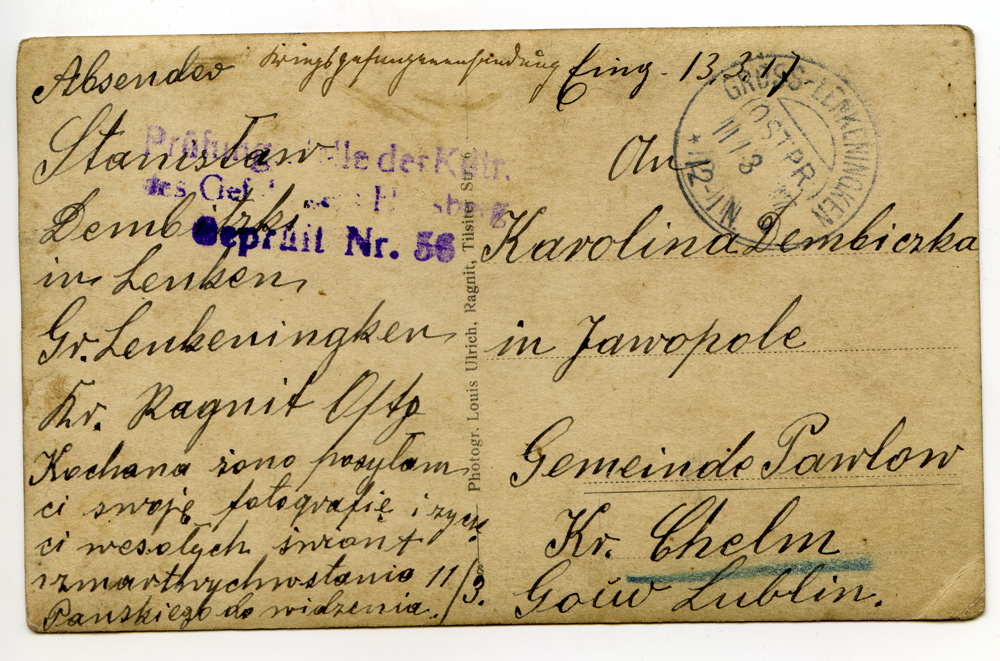 Absender
Kriegsgefangenensendung
Eing. 13.3.17
Stanisław
Dembitzki
in Lenken
Gr. Lenkeningken
Kr. Ragnit Ostp
Kochana żono posyłam
ci swoję fotografię i zycze
ci wesołych świont
zmartwychwstania 11/3.
Pańskiego do widzenia.
Prüfungsstelle der Kdtr.
des Gef
Geprüft Nr. 56
Photogr. Louis Ulrich, Ragnit, Tilsiter Str.
GROSS-LENKENINGKEN
(OSTPR.)
11/3
12-1N.
An
Karolina Dembiczka
in Jawopole
Gemeinde Pawlow
Kr. Chelm
Gouw Lublin.